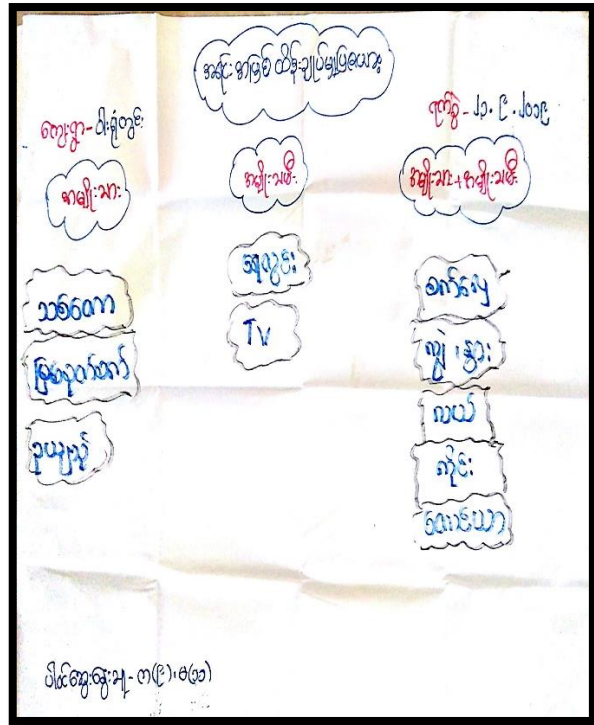 အရင်းအမြစ် ထိန်းချုပ်မှုပြဇယား
ကျေးရွာ - ဝါးရုံကွင်း
ရက်စွဲ - ၂၁.၉.၂၀၁၉
အမျိုးသား
အမျိုးသမီး
အမျိုးသား + အမျိုးသမီး
သစ်တော
မြစ်
ဥယျာဉ်
ရေတွင်း
TV
စက်လှေ
ကျွဲ၊ နွား
လယ်
ကိုင်း
တောင်ယာ
ပါဝင်ဆွေးနွေးသူ - က(၉)၊ မ(၁၁)